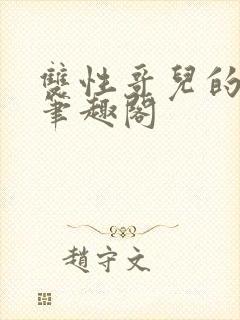 雙性哥兒的
筆趣閣
趙守文